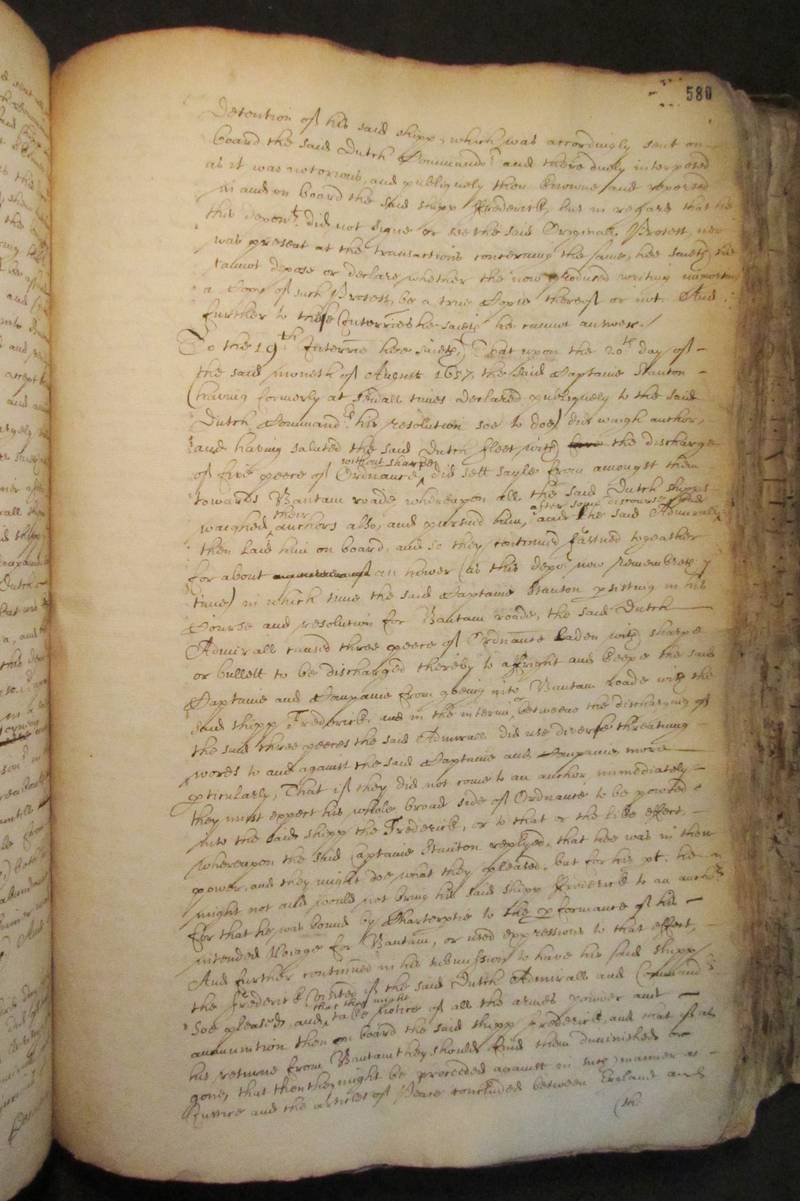 580
detention of his said shipp, which was accordingly sent on
board the said Dutch Commandr and there duely interposed
as it was notorious, and publiquely then knowne and reported
in and on board the said shipp Frederick, but in regard that hee
this depont did not signe or see the said Originall Protest, nor
was present at the transactions concerning the same, hee saieth hee
cannot depose or declare whether the now produced writing importing
a Copie of such Protest, be a true Copie thereof or not. And
further to these Interries he saieth he cannot answer./
To the 19th Interrie hee saieth, That upon the 20th day of
the said moneth of August 1657. the said Captaine Stanton
(having formerly at severall times declared publiquely to the said
Dutch Commandr his resolution soe to doe) did waigh anchor,
and having saluted the said Dutch fleet with the discharge
of five peece of Ordnance, without sharpe did sett sayle from amongst them
towards Bantam roade, whereupon all the said Dutch shipps
waighed their anchors also, and pursued him, and after some discourse the said Admirall
then laid him on board, and so they continued fastned togeather
for about an hower (as this depot now remembreth ye
time) in which time the said Captaine Stanton psisting in his
Course and resolution for Bantam roade, the said Dutch
Admirall caused three peece of Ordnance laden with sharpe
or bullett to be discharged thereby to affright and keepe the said
Captaine and Companie from goeing into Bantam Roade with the
said shipp Frederick, and in the interim betweene the discharging of
the said three peeces the said Admirall did use diverse threatning
words to and against the said Captaine and Companie more
pticularly, That if they did not come to an anchor immediately
they must expect his whole broad side of Ordnance to be powred
into the said shipp the Frederick, or to that or the like effect,
whereupon the said Captaine Stanton replyed, that hee was in their
power, and they might doe what they pleased, but for his pt. hee
might not and would not bring his said shipp Frederick to an anchor
for that he was bound by Charterptie to the pformance of his
intended Voyage for Bantam, or used expressions to that effect,
And further continued in his submission to have his said shipp
the Frederick visited if the said Dutch Admirall and Command
soe pleased, and that they might take notice of all the armes powder and
ammunition then on board the said shipp Frederick, and that if at
his returne from Bantam they should find them diminished or
gone, that then they might be proceeded against in such manner as
Justice and the articles of Peace concluded between England and
(the